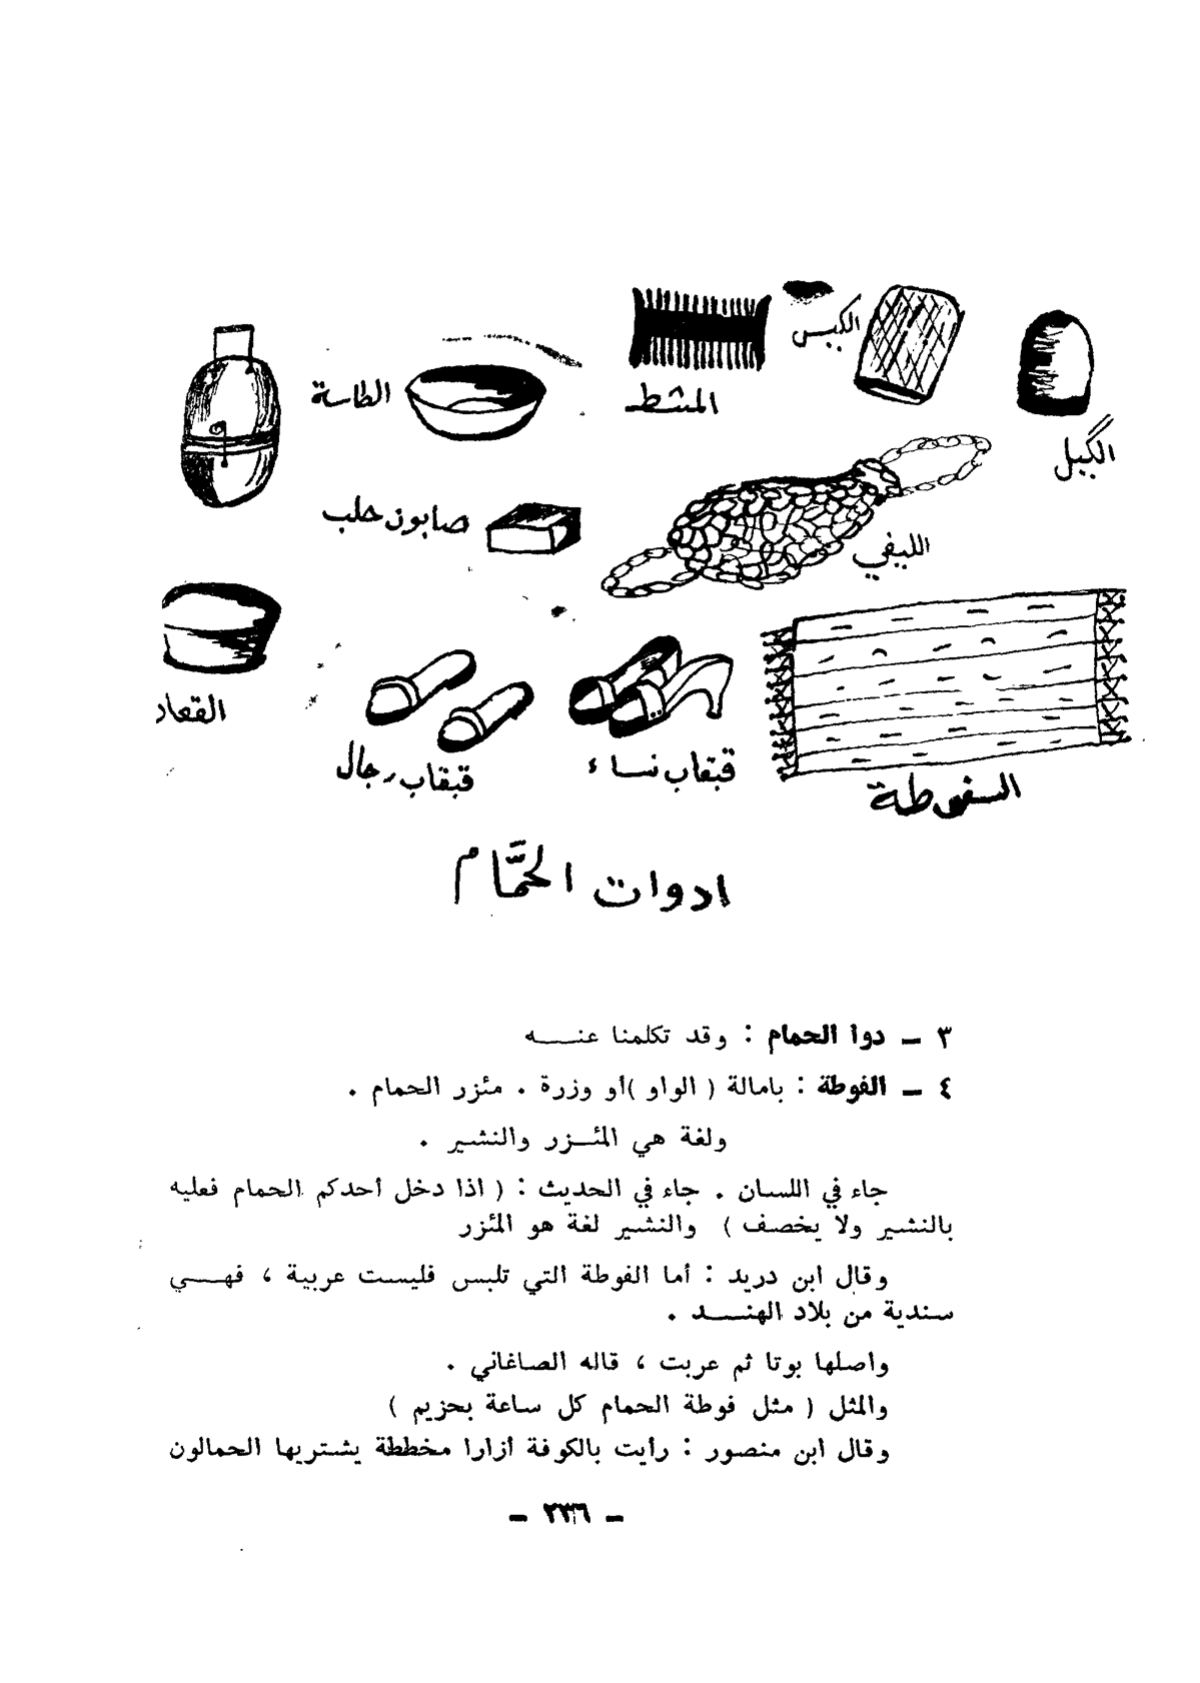 الكيس
المشط
الطاسة
الگيل
صابون حلب
الليفي
القعاد
قبقاب رجال
قبقاب نساء
ادوات الحمَّام
٣ ــ دوا الحمام : وقد تكلمنا عنـــه
٤ ــ الفوطة : بامالة ( الواو )أو وزرة . مئزر الحمام .
ولغة هي المئــزر والنشير .
جاء في اللسان . جاء في الحديث : ( اذا دخل أحدكم الحمام فعليه
بالنشير ولا يخصف ) والنشير لغة هو المئزر
وقال ابن دريد : أما الفوطة التي تلبس فليست عربية ، فهــي
سندية من بلاد الهنــد .
واصلها بوتا ثم عربت ، قاله الصاغاني .
والمثل ( مثل فوطة الحمام كل ساعة بحزيم )
وقال ابن منصور : رأيت بالكوفة أزارا مخططة يشتريها الحمالون
ــ ٢٣٦ ــ